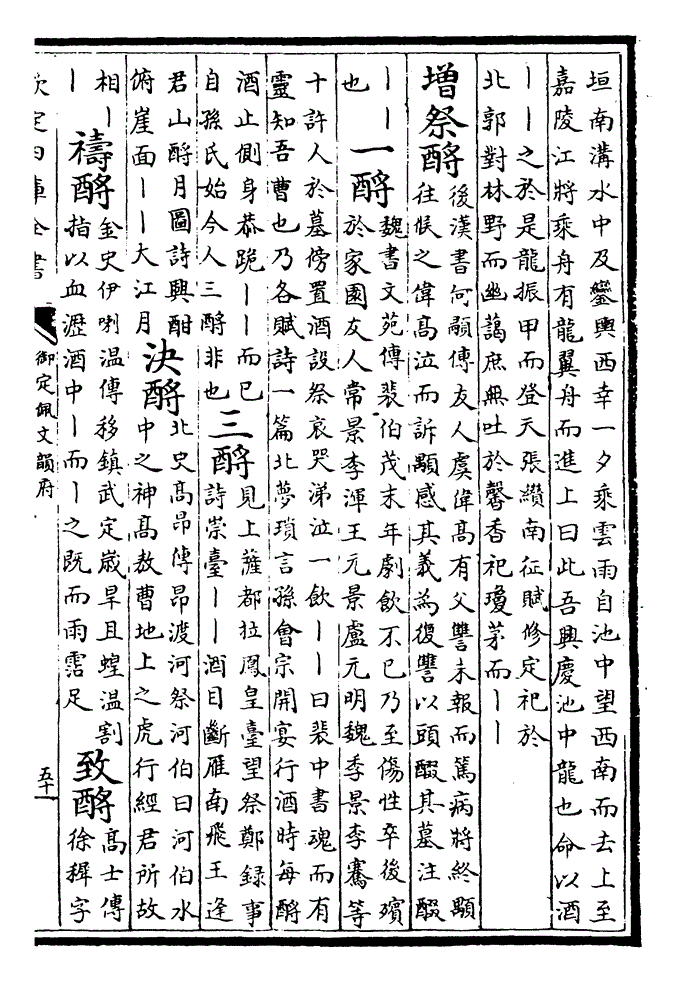 垣南溝水中及鑾輿西幸一夕乘雲雨自池中望西南而去上至
嘉陵江將乘舟有龍翼舟而進上曰此吾興慶池中龍也命以酒
丨丨之於是龍振甲而登天張纘南征賦修定祀於
北郭對林野而幽藹庶無吐於馨香祀瓊茅而丨丨
增祭酹
後漢書何顒傳友人虞偉高有父讐未報而篤病將終顒
往候之偉高泣而訴顒感其義為復讐以頭醊其墓注醊
丨丨
也
一酹
魏書文苑傳裴伯茂末年劇飲不已乃至傷性卒後殯
於家園友人常景李渾王元景盧元明魏季景李騫等
十許人於墓傍置酒設祭哀哭涕泣一飲丨丨曰裴中書魂而有
靈知吾曹也乃各賦詩一篇北夢瑣言孫會宗開宴行酒時每酹
酒止側身恭跪丨丨而已
自孫氏始今人三酹非也
三酹
見上薩都拉鳳皇臺望祭鄭録事
詩崇臺丨丨酒目斷雁南飛王逢
君山酹月圖詩興酣
俯崖面丨丨大江月
決酹
北史高昂傳昂渡河祭河伯曰河伯水
中之神高敖曹地上之虎行經君所故
相丨
丨
禱酹
金史伊喇温傳移鎮武定歲旱且蝗温割
指以血瀝酒中丨而丨之既而雨霑足
致酹
高士傳
徐穉字
欽定四庫全書
御定佩文韻府
五十